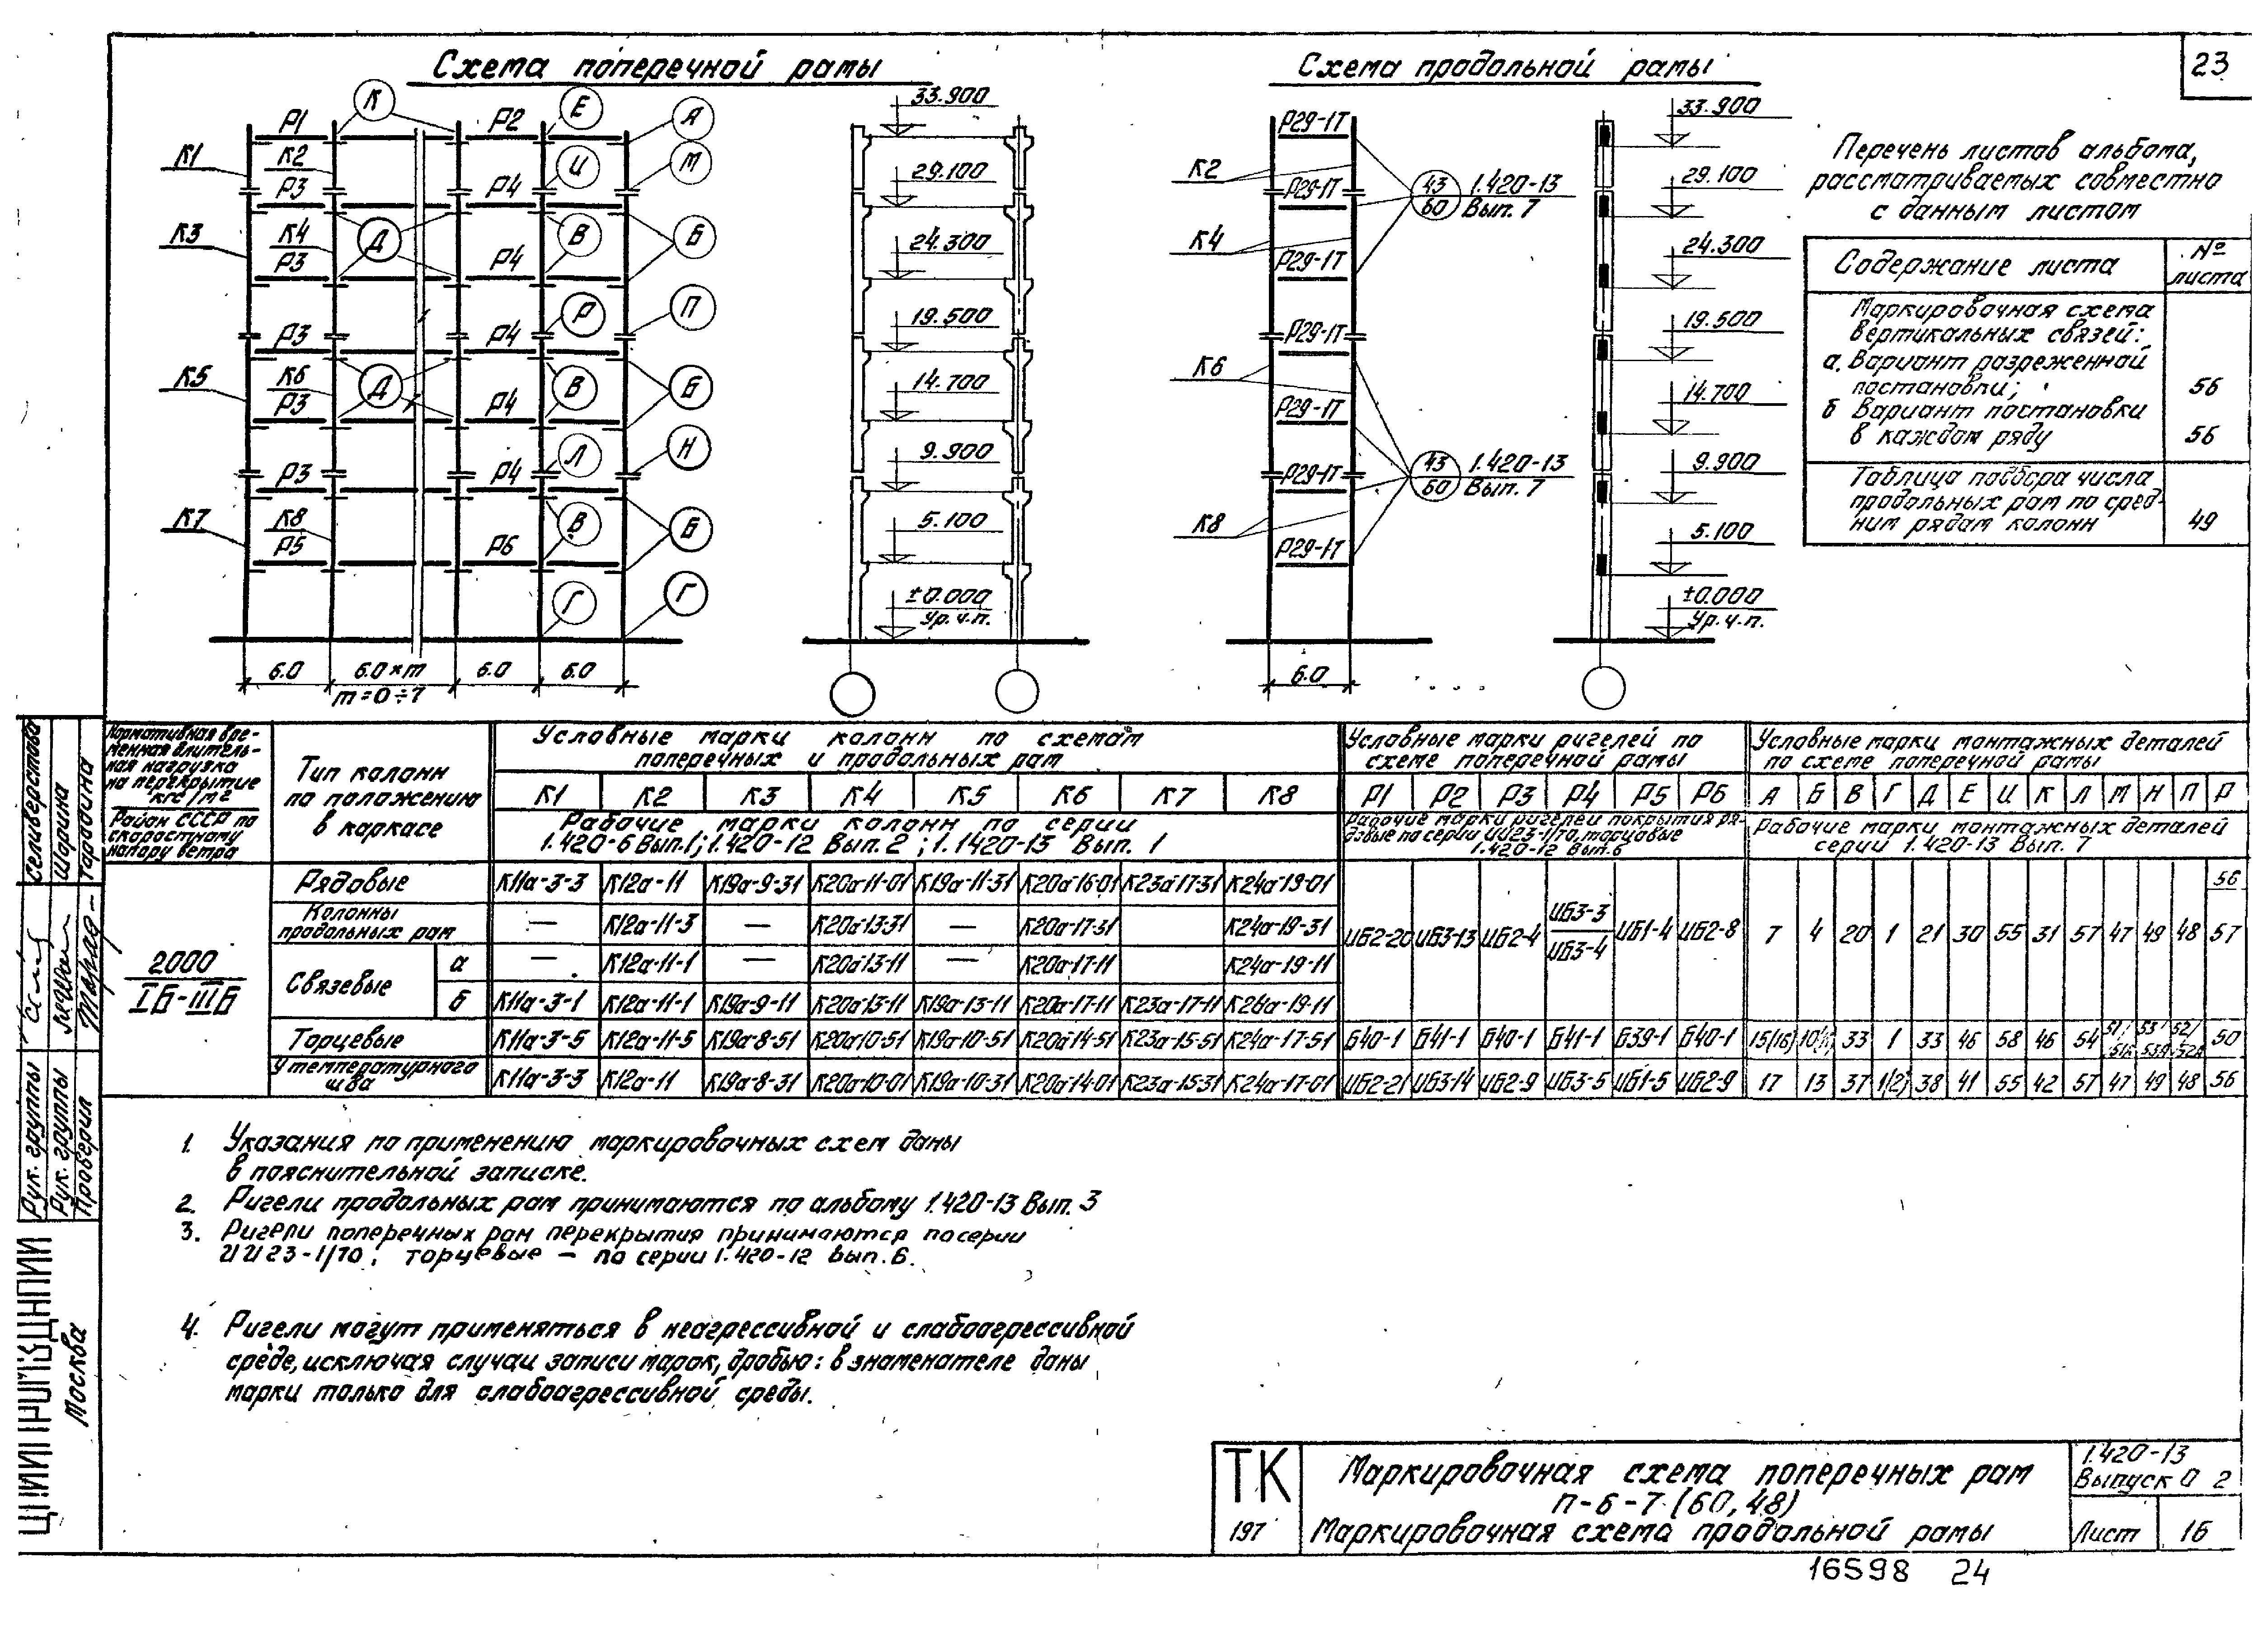 23
Схема поперечной рамы
К Е А И М Д В Б Р П Д В Б Л Н В Б Г Г
Р1 Р2
К1 К2
Р3 Р4
К3 К4
Р3 Р4
Р3 Р4
К5 К6
Р3 Р4
Р3 Р4
К7 К8
Р5 Р6
6.0 6.0×m 6.0 6.0
m=0÷7
33.900
29.100
24.300
19.500
14.700
9.900
5.100
±0.000
Ур.ч.п.
Схема продольной рамы
Р29-1Т
К2
Р29-1Т
43/60 1.420-13 Вып. 7
К4
Р29-1Т
Р29-1Т
К6
Р29-1Т
Р29-1Т
43/60 1.420-13 Вып. 7
К8
Р29-1Т
6.0
33.900
29.100
24.300
19.500
14.700
9.900
5.100
±0.000
Ур.ч.п.
Перечень листов альбома,
рассматриваемых совместно
с данным листом
Содержание листа № листа
Маркировочная схема
вертикальных связей:
а. Вариант разреженной
постановки; 56
б Вариант постановки
в каждом ряду 56
Таблица подбора числа
продольных рам по сред-
ним рядам колонн 49
Нормативная вре-
менная длитель-
ная нагрузка
на перекрытие
кгс/м2
Район СССР по
скоростному
напору ветра
Тип колонн
по положению
в каркасе
Условные марки колонн по схемам
поперечных и продольных рам
К1 К2 К3 К4 К5 К6 К7 К8
Рабочие марки колонн по серии
1.420-6 Вып.1; 1.420-12 Вып. 2 ; 1.1420-13 Вып. 1
Условные марки ригелей по
схеме поперечной рамы
Р1 Р2 Р3 Р4 Р5 Р6
Рабочие марки ригелей покрытия ря-
довые по серии ИИ23-1/70, торцовые
1.420-12 Вып.6
Условные марки монтажных деталей
по схеме поперечной рамы
А Б В Г Д Е И К Л М Н П Р
Рабочие марки монтажных деталей
серии 1.420-13 Вып. 7
2000
IБ-IIIБ
Рядовые К11а-3-3 К12а-11 К19а-9-31 К20а-11-01 К19а-11-31 К20а-16-01 К23а-17-31 К24а-19-01
Колонны продольных рам — К12а-11-3 — К20а-13-31 — К20а-17-31 К24а-19-31
Связевые а — К12а-11-1 — К20а-13-11 — К20а-17-11 К24а-19-11
б К11а-3-1 К12а-11-1 К19а-9-11 К20а-13-11 К19а-13-11 К20а-17-11 К23а-17-11 К26а-19-11
ИБ2-20 ИБ3-13 ИБ2-4 ИБ3-3/ИБ3-4 ИБ1-4 ИБ2-8 7 4 20 1 21 30 55 31 57 47 49 48 56/57
Торцевые К11а-3-5 К12а-11-5 К19а-8-51 К20а-10-51 К19а-10-51 К20а-14-51 К23а-15-51 К24а-17-51 Б40-1 Б41-1 Б40-1 Б41-1 Б39-1 Б40-1 15(16) 33 1 33 46 58 46 54 50
У температурного шва К11а-3-3 К12а-11 К19а-8-31 К20а-10-01 К19а-10-31 К20а-14-01 К23а-15-31 К24а-17-01 ИБ2-21 ИБ3-14 ИБ2-9 ИБ3-5 ИБ1-5 ИБ2-9 17 13 37 1(2) 38 41 55 42 57 47 49 48 56
1. Указания по применению маркировочных схем даны
в пояснительной записке.
2. Ригели продольных рам принимаются по альбому 1.420-13 Вып. 3
3. Ригели поперечных рам перекрытия принимаются по серии
ИИ23-1/70; торцевые – по серии 1.420-12 вып.6.
4. Ригели могут применяться в неагрессивной и слабоагрессивной
среде, исключая случаи записи марок, дробью: в знаменателе даны
марки только для слабоагрессивной среды.
Рук. группы Селиверстова
Рук. группы Шорина
Проверил Тарадина
Москва
ТК
197
Маркировочная схема поперечных рам
п-6-7 (60,48)
Маркировочная схема продольной рамы
1.420-13
Выпуск 0 2
Лист 16
16598 24